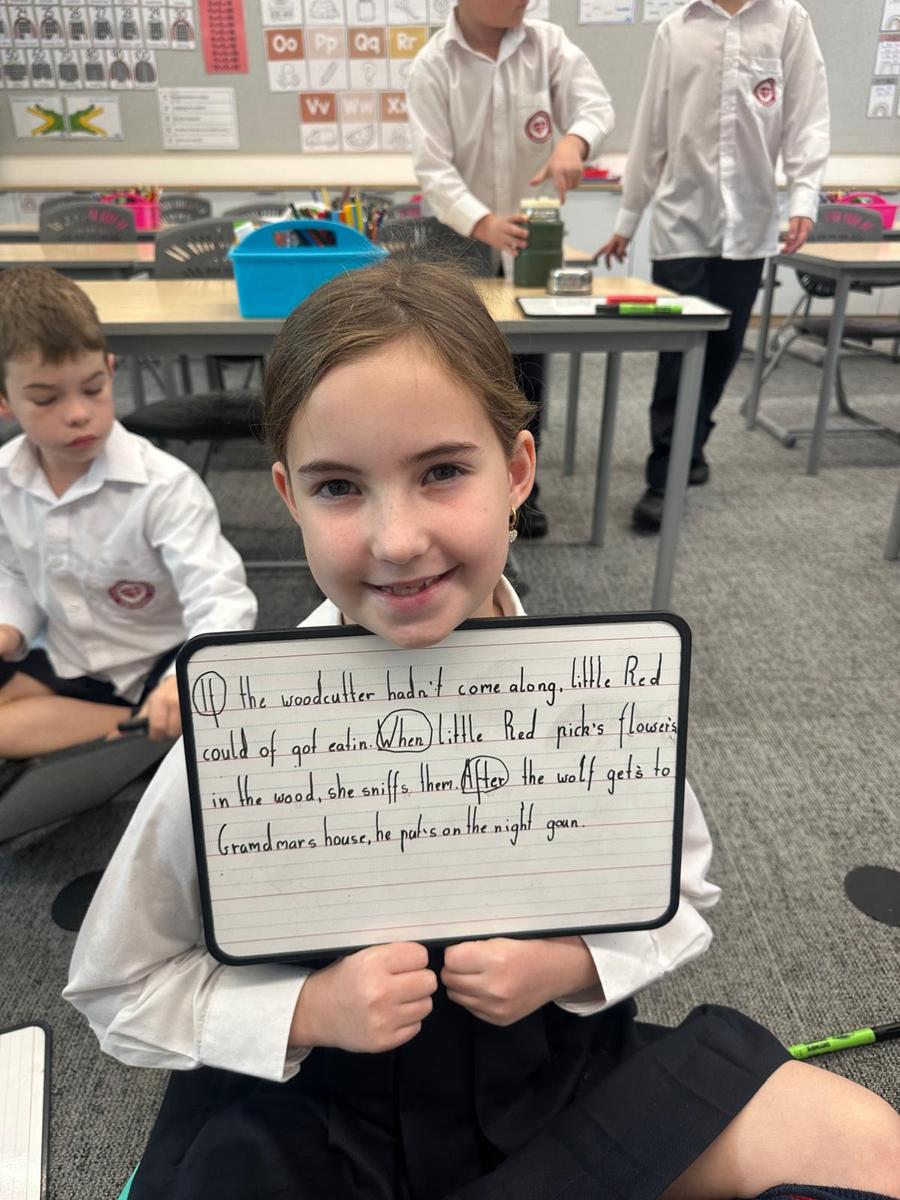 Oo Pp Qq Rr
Vv Ww Xx
If the woodcutter hadn't come along, little Red
could of got eatin. When little Red pick's flowers
in the wood, she sniffs them. After the wolf get's to
Gramdmars house, he put's on the night goun.